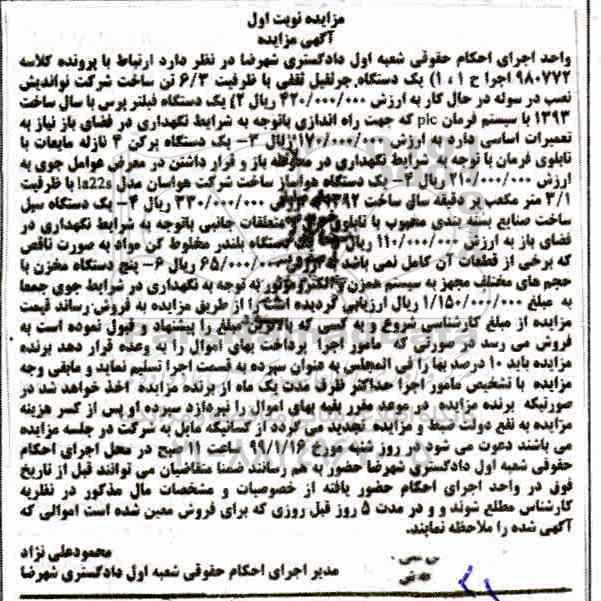 مزایده نوبت اول
آگهی مزایده
واحد اجرای احکام حقوقی شعبه اول دادگستری شهرضا در نظر دارد ارتباط با پرونده کلاسه
۹۸۰۷۷۲ اجرا ح ۱، ۱) یک دستگاه جرثقیل ثقفی با ظرفیت ۶/۳ تن ساخت شرکت نواندیش
نصب در سوله در حال کار به ارزش ۴۲۰/۰۰۰/۰۰۰ ریال ۲) یک دستگاه فیلتر پرس با سال ساخت
۱۳۹۳ با سیستم فرمان plc که جهت راه اندازی باتوجه به شرایط نگهداری در فضای باز نیاز به
تعمیرات اساسی دارد به ارزش ۱۷۰/۰۰۰/۰۰۰ ریال ۳- یک دستگاه پرکن ۴ نازله مایعات با
تابلوی فرمان با توجه به شرایط نگهداری در محوطه باز و قرار داشتن در معرض عوامل جوی به
ارزش ۲۱۰/۰۰۰/۰۰۰ ریال ۴- یک دستگاه هواساز ساخت شرکت هواسان مدل la22s با ظرفیت
۳/۱ متر مکعب بر دقیقه سال ساخت ۱۳۹۲ ۳۳۰/۰۰۰/۰۰۰ ریال ۴- یک دستگاه سیل
ساخت صنایع بسته بندی محبوب با تابلوی متعلقات جانبی باتوجه به شرایط نگهداری در
فضای باز به ارزش ۱۱۰/۰۰۰/۰۰۰ ریال دستگاه بلندر مخلوط کن مواد به صورت ناقص
که برخی از قطعات آن کامل نمی باشد به ارزش ۶۵/۰۰۰/۰۰۰ ریال ۶- پنج دستگاه مخزن با
حجم های مختلف مجهز به سیستم همزن و الکتروموتور به توجه به نگهداری در شرایط جوی جمعا
به مبلغ ۱/۱۵۰/۰۰۰/۰۰۰ ریال ارزیابی گردیده است را از طریق مزایده به فروش رساند قیمت
مزایده از مبلغ کارشناسی شروع و به کسی که بالاترین مبلغ را پیشنهاد و قبول نموده است به
فروش می رسد در صورتی که مامور اجرا پرداخت بهای اموال را به وعده قرار دهد برنده
مزایده باید ۱۰ درصد بها را فی المجلس به عنوان سپرده به قسمت اجرا تسلیم نماید و مابقی وجه
مزایده با تشخیص مامور اجرا حداکثر ظرف مدت یک ماه از برنده مزایده اخذ خواهد شد در
صورتیکه برنده مزایده در موعد مقرر بقیه بهای اموال را نپردازد سپرده او پس از کسر هزینه
مزایده به نفع دولت ضبط و مزایده تجدید می گردد از کسانیکه مایل به شرکت در جلسه مزایده
می باشند دعوت می شود در روز شنبه مورخ ۹۹/۱/۱۶ ساعت ۱۱ صبح در محل اجرای احکام
حقوقی شعبه اول دادگستری شهرضا حضور به هم رسانند ضمنا متقاضیان می توانند قبل از تاریخ
فوق در واحد اجرای احکام حضور یافته از خصوصیات و مشخصات مال مذکور در نظریه
کارشناس مطلع شوند و و در مدت ۵ روز قبل روزی که برای فروش معین شده است اموالی که
آگهی شده را ملاحظه نمایند.
محمودعلی نژاد
مدیر اجرای احکام حقوقی شعبه اول دادگستری شهرضا